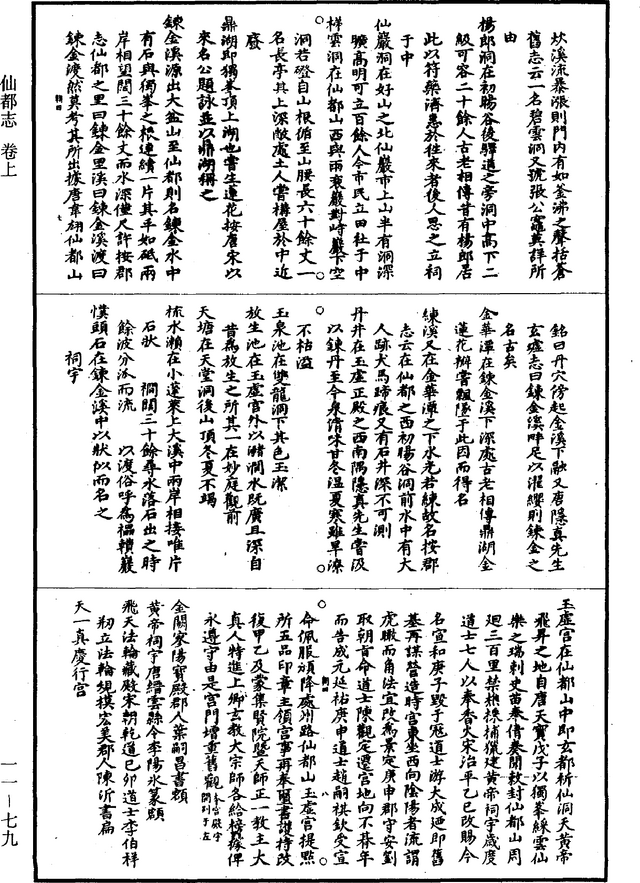 仙都志 卷上
一一－七九
炊溪流暴漲則門内有如釜沸之聲括蒼
舊志云一名碧雲洞又號張公竈莫詳所
由
楊郎洞在初暘谷後驛道之旁洞中高下二
級可容二十餘人古老相傳昔有楊郎居
此以符藥濟惠於徃來者後人思之立祠
于中
仙巖洞在好山之北仙巖市上山半有洞深
曠高明可立百餘人今市民立田社于中
祥雲洞在仙都山西與兩裘巖對峙巖下空
洞若磴自山根循至山腰長六十餘丈一
名長亭其上深敞處土人嘗構屋於中近
廢
鼎湖即獨峯頂上湖也嘗生蓮花按唐宋以
來名公題詠並以鼎湖稱之
鍊金溪源出大盆山至仙都則名鍊金水中
有石與獨峯之根連續一片其平如砥兩
岸相望闊三十餘丈而水深僅尺許按郡
志仙都之里曰鍊金里溪曰鍊金溪渡曰
鍊金渡然莫考其所出據唐韋翃仙都山
銘曰丹穴傍起金溪下融又唐隱真先生
玄墟志曰鍊金溪畔足以濯纓則鍊金之
名古矣
金華潭在鍊金溪下深處古老相傳鼎湖金
蓮花瓣嘗飄墜于此因而得名
練溪又在金華潭之下水光若練故名按郡
志云在仙都之西初暘谷洞前水中有大
人跡犬馬蹄痕又有石井深不可測
丹井在玉虛正殿之西南隅隱真先生嘗汲
以鍊丹至今泉清味甘冬温夏寒雖旱潦
不枯溢
玉泉池在雙龍洞下其色玉潔
放生池在玉虛宮外以瀦澗水既廣且深自
昔為放生之所其一在妙庭觀前
天塘在天堂洞後山頂冬夏不竭
梳水瀨在小蓬萊上大溪中兩岸相接唯片
石狀　襉闊三十餘尋水落石出之時
餘波分落而流　以渡俗呼為襵襀巖
幞頭石在鍊金溪中以狀似而名之
祠宇
玉虛宮在仙都山中即玄都祈仙洞天黃帝
飛昇之地自唐天寶戊子以獨峯綵雲仙
樂之瑞刺史苗奉倩奏聞敕封仙都山周
廻三百里禁樵採捕獵建黃帝祠宇歲度
道士七人以奉香火宋治平乙巳改賜今
名宣和庚子毀于寇道士游大成廼即舊
基再謀營造時宮東坐西向陰陽者流謂
虎瞰而角法宜改為景定庚申郡守安劉
取朝旨命道士陳觀定遷宮地向不朞年
而告成元延祐庚申道士趙嗣祺欽受宣
命佩服頒降處州路仙都山玉虛宮提點
所五品印章主領宮事再奉璽書護持改
復甲乙及蒙集賢院暨天師正一教主大
真人特進上卿玄教大宗師各給榜據俾
永遵守由是宮門增重舊觀本宮殿宇開列于左
金闕寥陽寶殿郡人葉嗣昌書額
黃帝祠宇唐縉雲縣令李陽冰篆額
飛天法輪藏殿宋朝乾道己卯道士李伯祥
刱立法輪規模宏美郡人陳沂書扁
天一真慶行宮